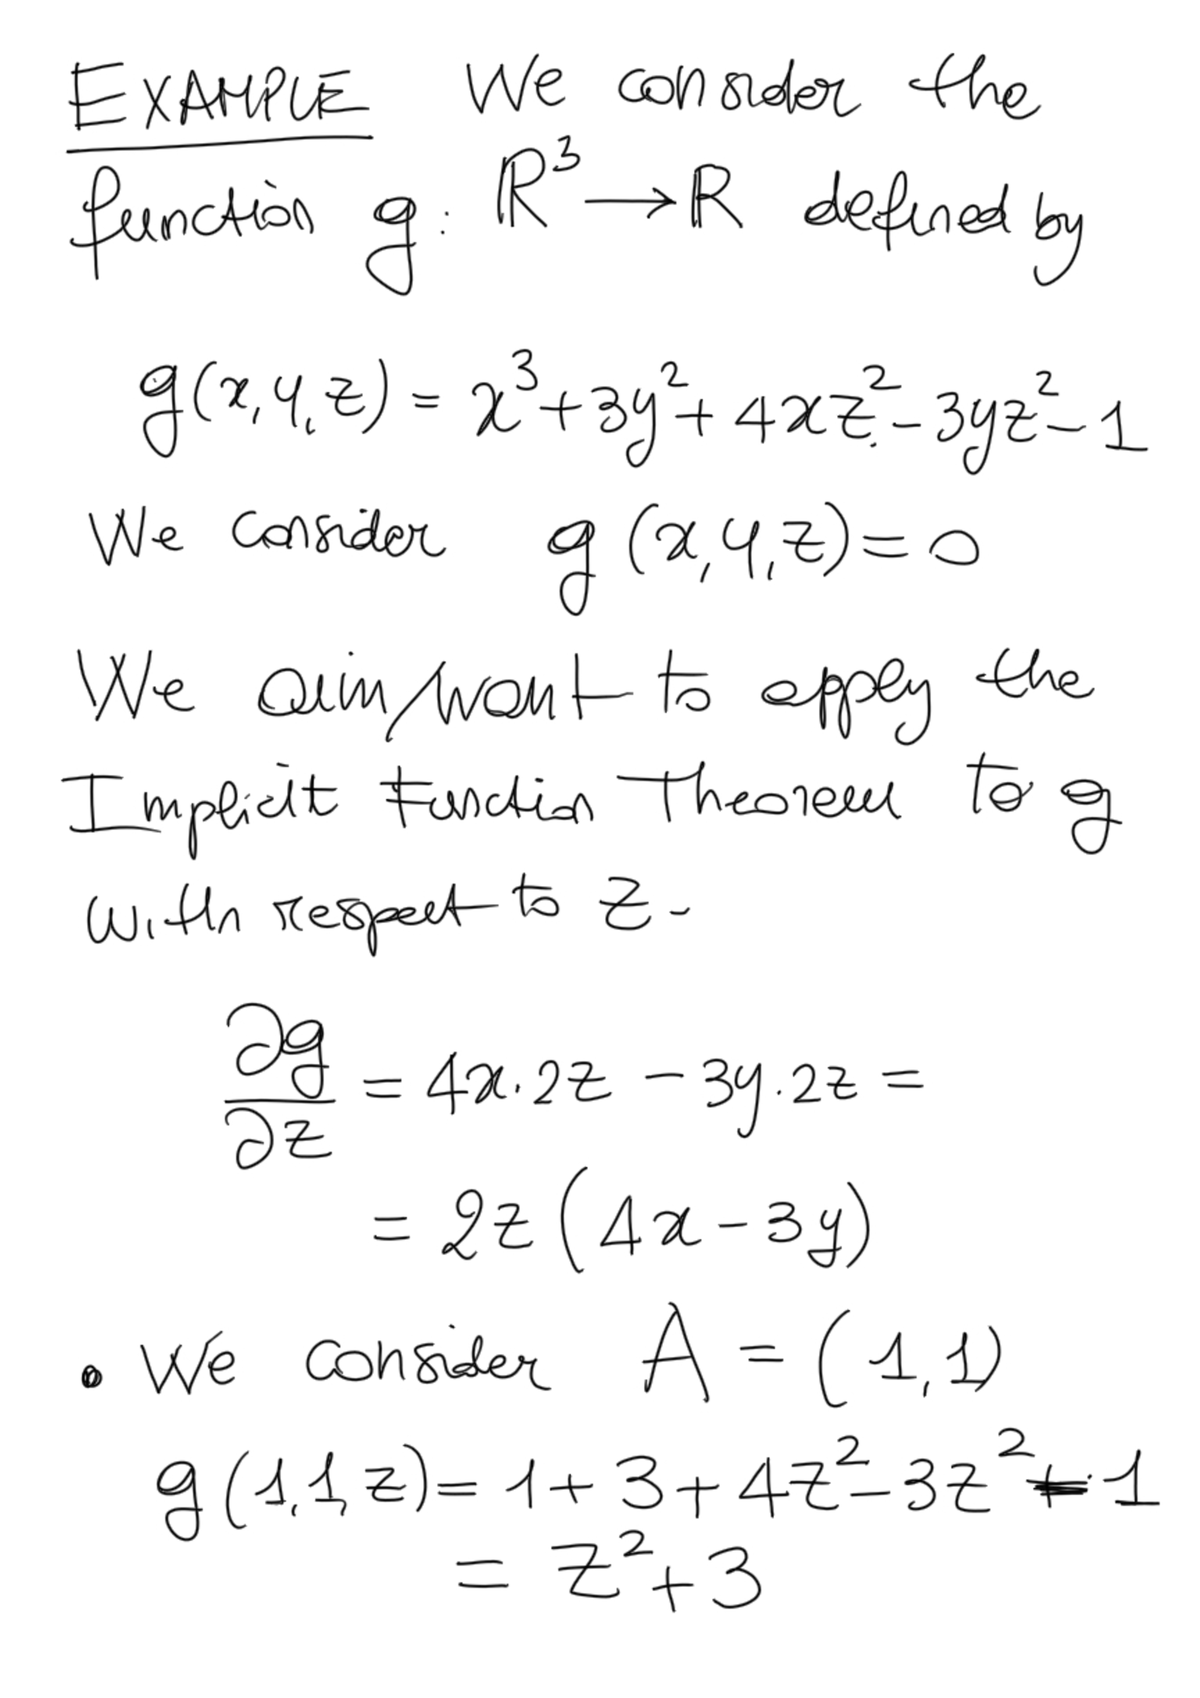 EXAMPLE We consider the
function g: ℝ³ → ℝ defined by
g(x,y,z) = x³+3y²+4xz²-3yz²-1
We consider g(x,y,z)=0
We aim/want to apply the
Implicit Function Theorem to g
with respect to z.
∂g/∂z = 4x·2z - 3y·2z =
= 2z(4x-3y)
• We consider A = (1,1)
g(1,1,z)= 1+3+4z²-3z²-1
= z²+3